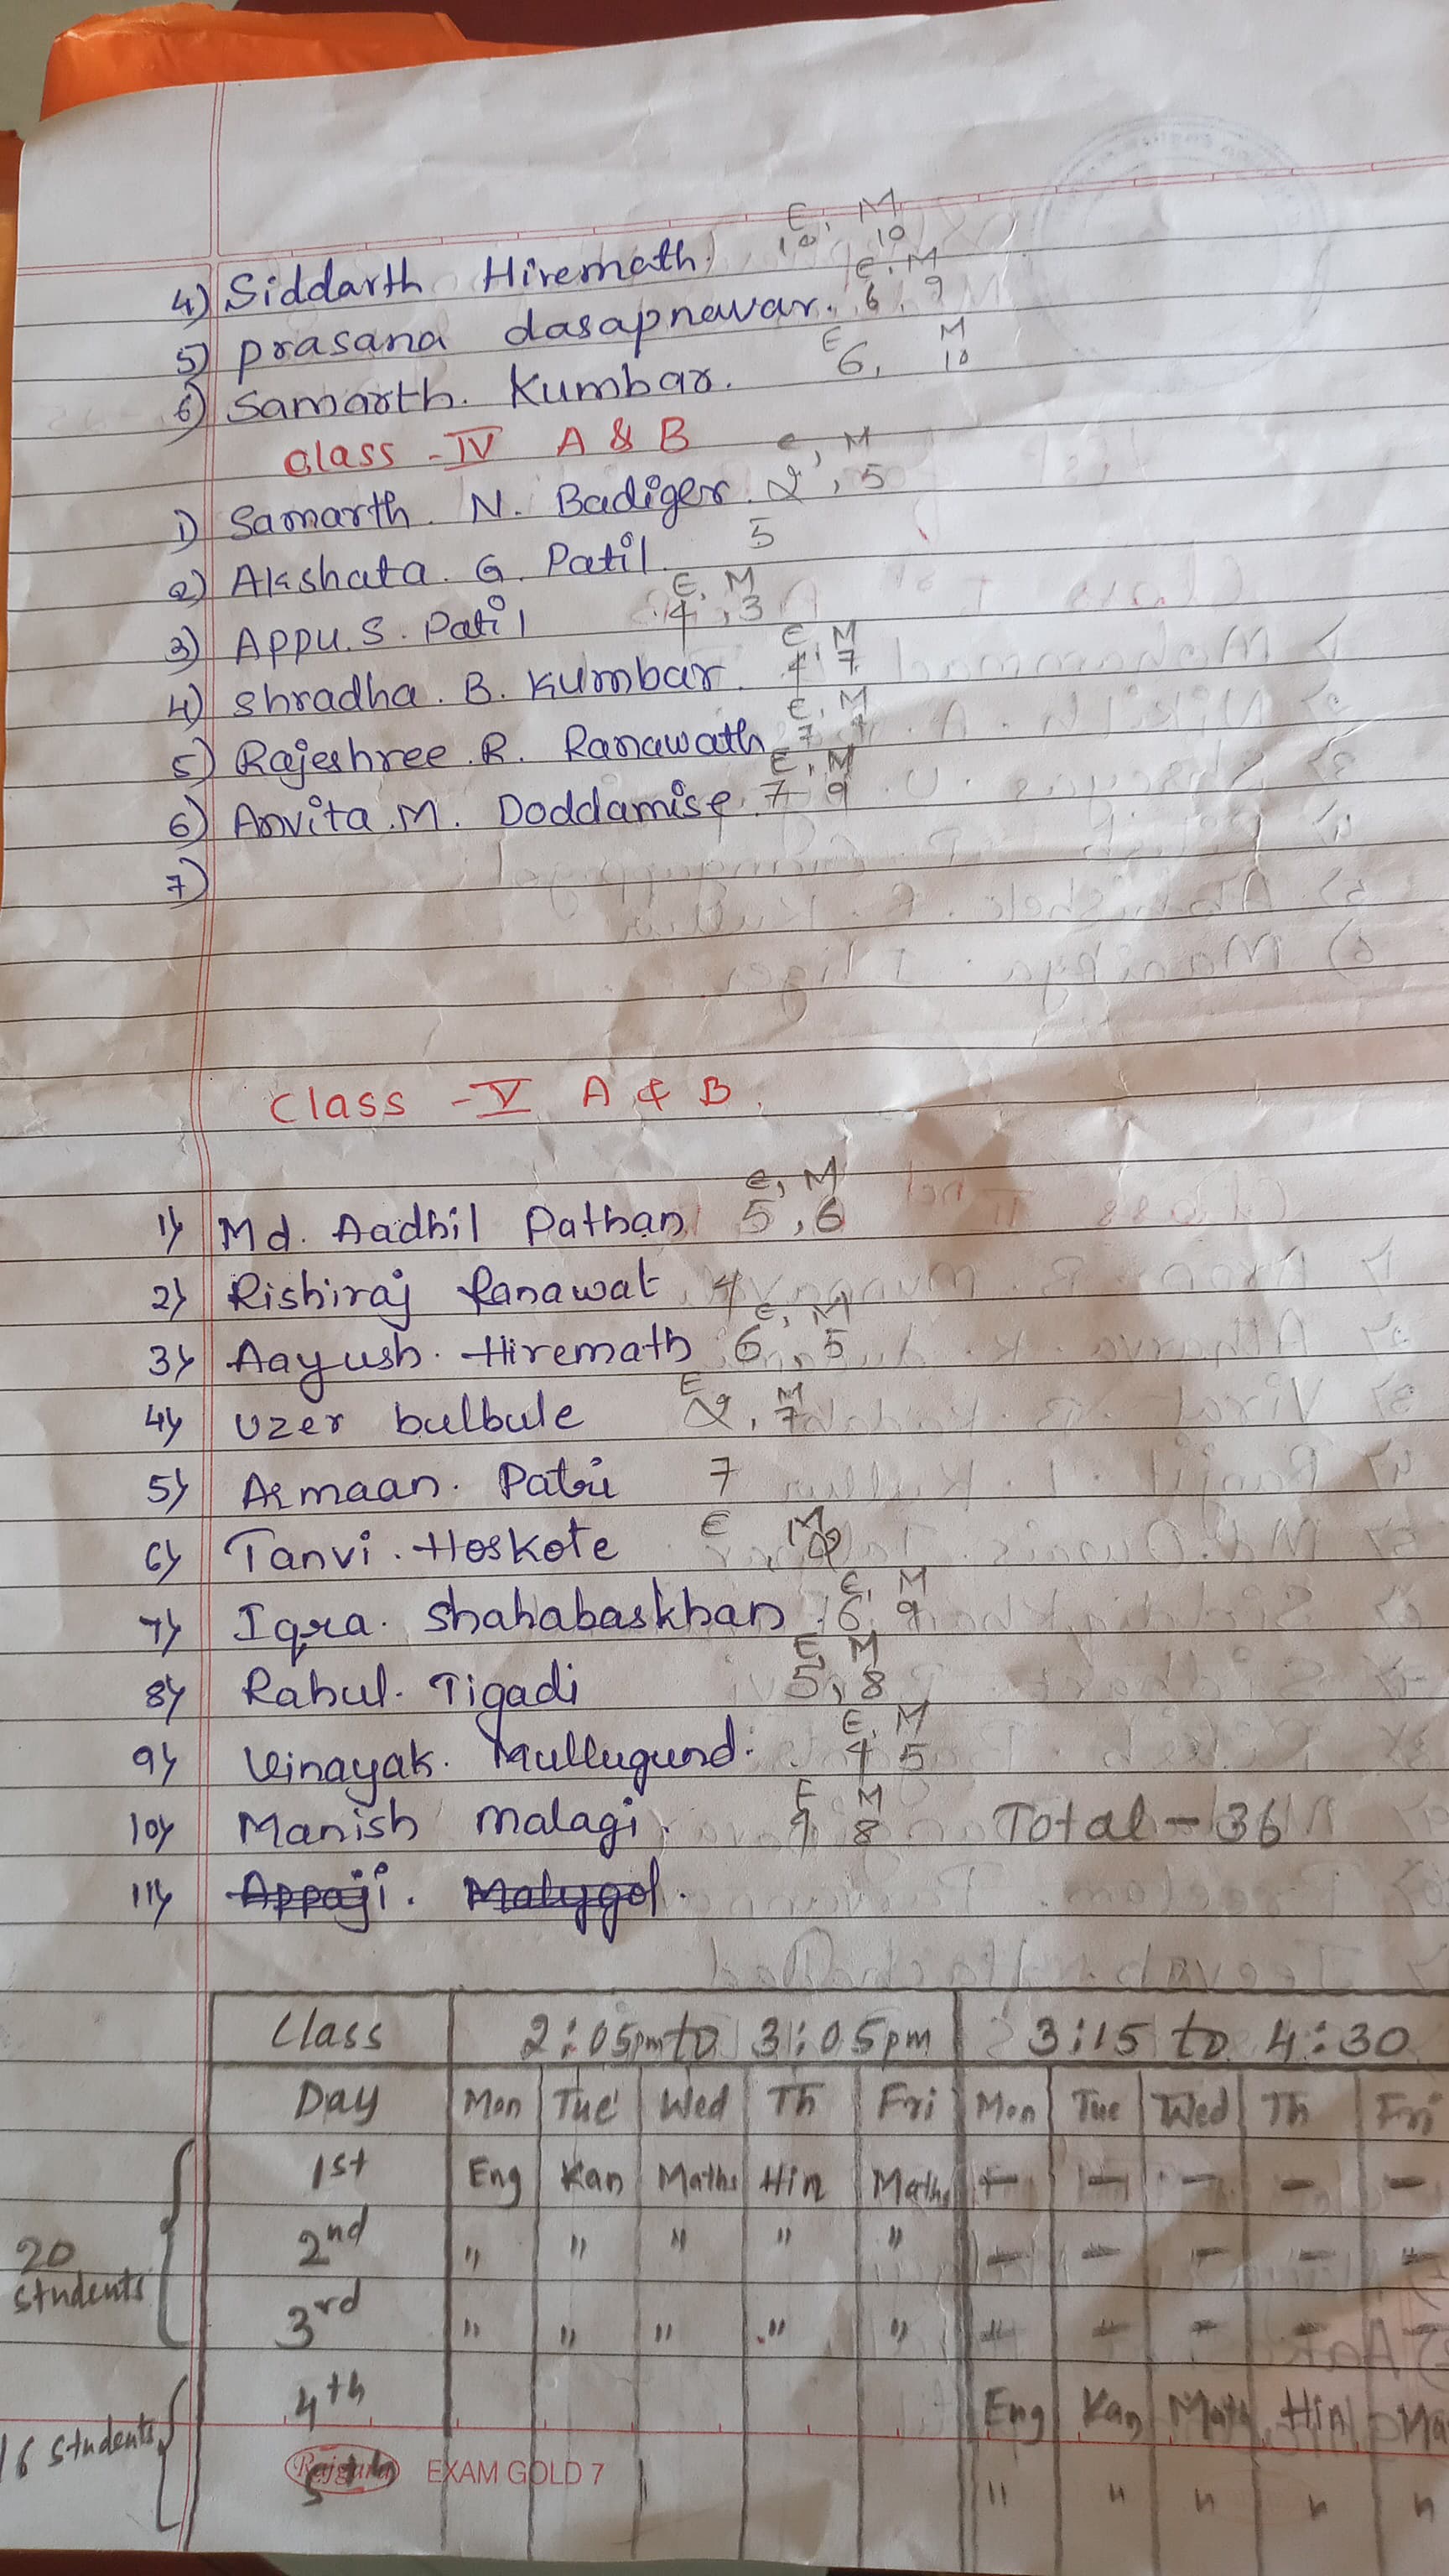 E, M
4) Siddarth Hiremath. 10, 10
E, M
5) prasana dasapnavar. 6, 9
E M
6) Samarth. Kumbar. 6, 10
Class - IV A & B
e, M
1) Samarth. N. Badiger. 2, 5
2) Akshata. G. Patil. 5
E, M
3) Appu. S. Patil 4, 3
E, M
4) Shradha. B. Kumbar. 4, 7
E, M
5) Rajeshree. R. Ranawath 7 7
E, M
6) Anvita. M. Doddamise. 7 9
7)
Class - V A & B.
e, M
1) Md. Aadhil Pathan 5, 6
2) Rishiraj Ranawat 4
E, M
3) Aayush. Hiremath 6, 5
E M
4) Uzer bulbule 2, 7
5) Armaan. 7
E M
6) Tanvi. Hoskote , 2
E, M
7) Iqra. Shahabaskhan 6, 9
E M
8) Rahul. Tigadi 5, 8
E, M
9) Vinayak. Mullugund. 4 5
E M
10) Manish malagi. 9 8 Total - 36
11) Appaji.
Class 2:05pm to 3:05pm 3:15 to 4:30
Day Mon Tue Wed Th Fri Mon Tue Wed Th Fri
1st Eng Kan Maths Hin Maths - - - - -
2nd " " " " " - - - - -
20 students
3rd " " " " " - - - - -
4th Eng Kan Math Hin Ma
16 students
Rajguru EXAM GOLD 7
5th " " " " "